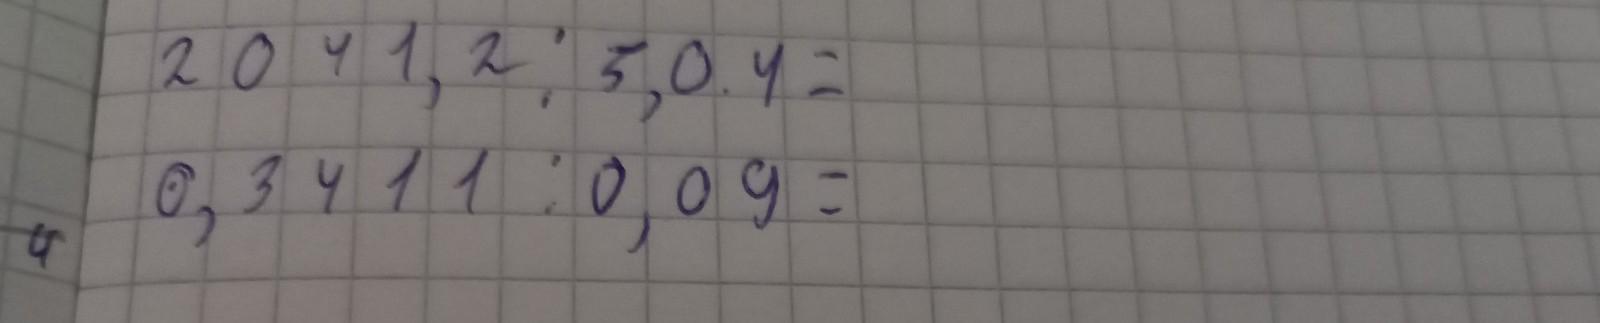 2041,2 : 5,04 =
0,3411 : 0,09 =
4